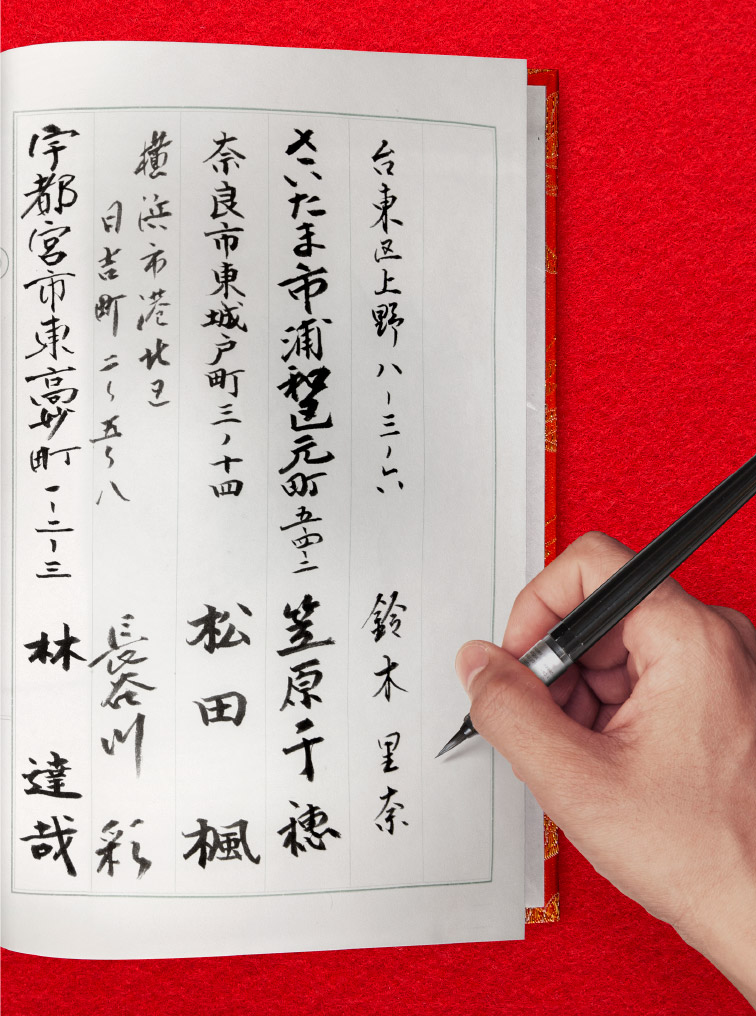 台東区上野八ー三ノ六 鈴木里奈
さいたま市浦和区元町五ー四ー二 笠原千穂
奈良市東城戸町三ノ十四 松田楓
横浜市港北区
日吉町二ー五ー八 長谷川彩
宇都宮市東高砂町一ー二ー三 林達哉